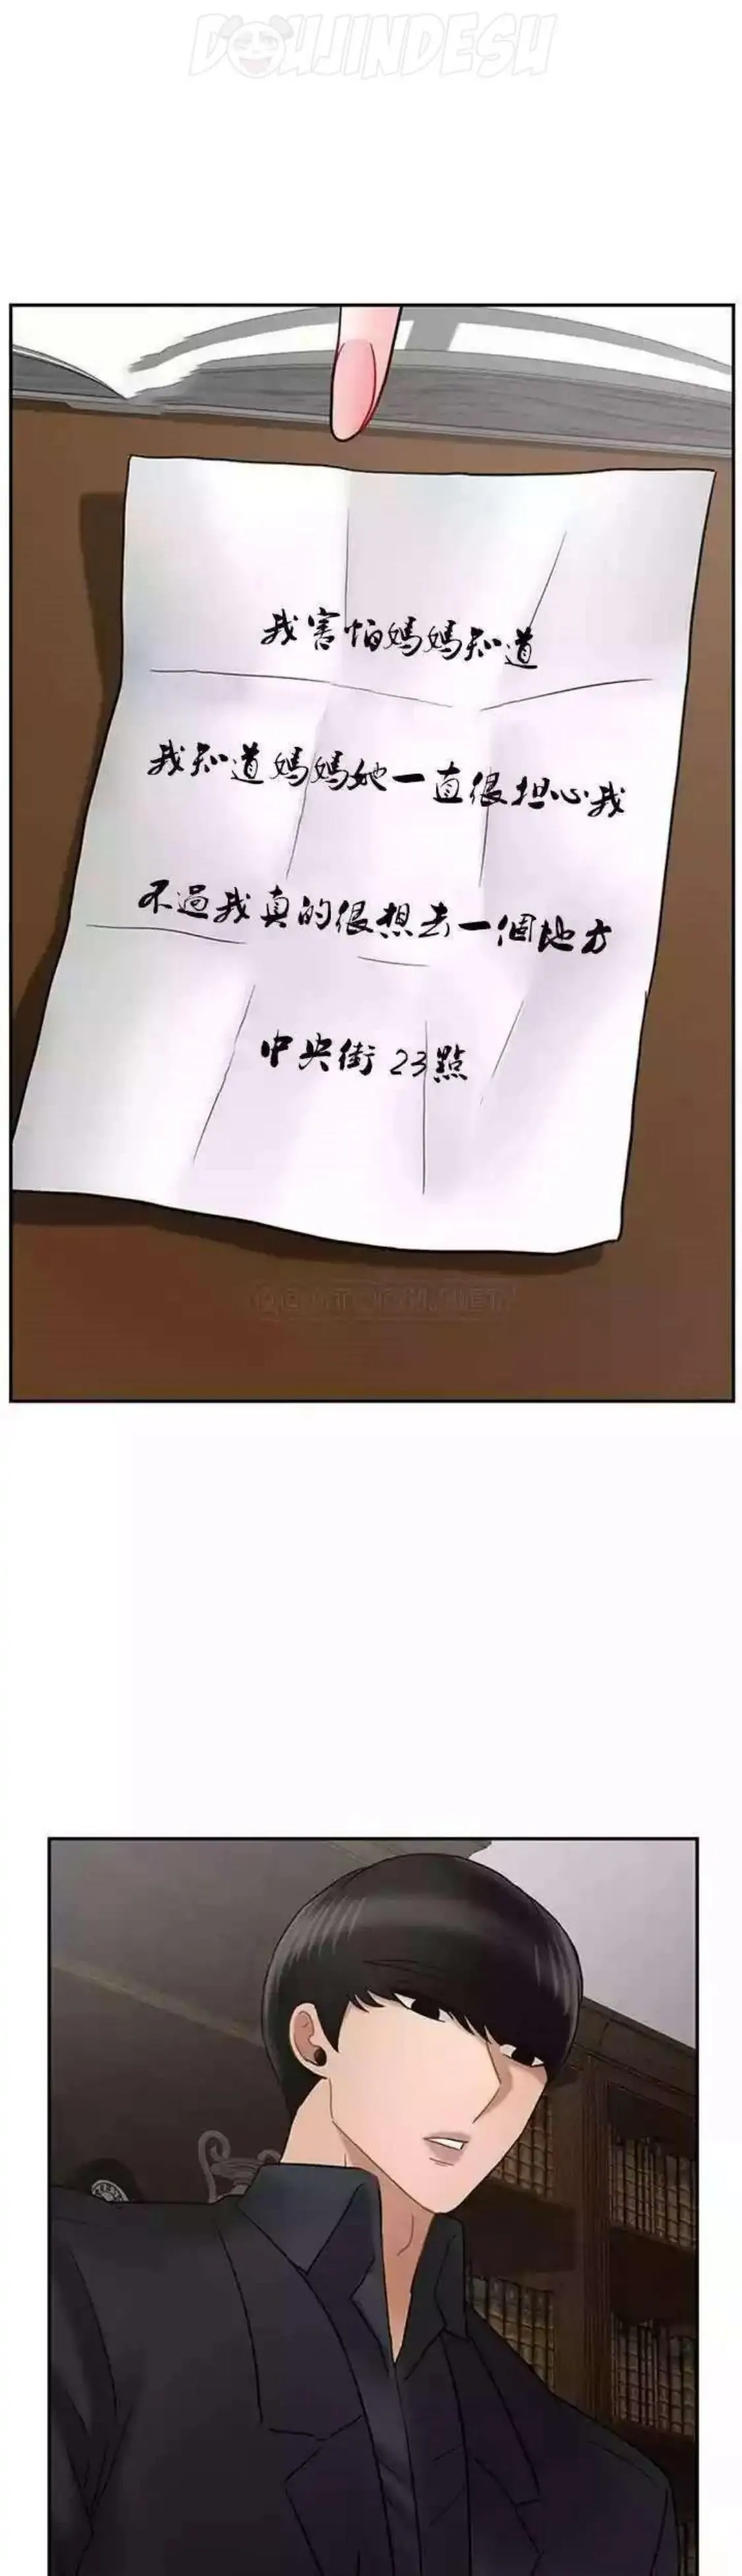 DOUJINDESU
我害怕媽媽知道
我知道媽媽她一直很担心我
不過我真的很想去一個地方
中央街 23點